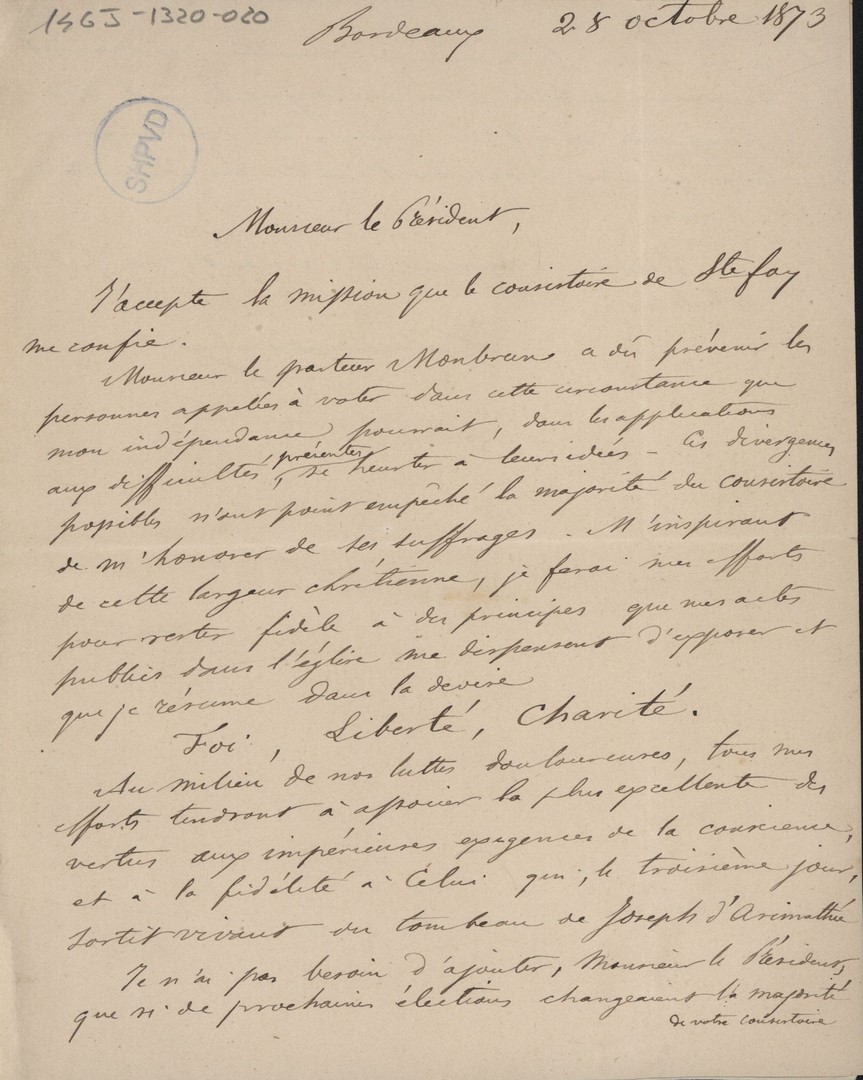 14GJ-1320-020
Bordeaux 28 octobre 1873
SHPVD
Monsieur le Président,
J'accepte la mission que le consistoire de Ste foy
me confie.
Monsieur le pasteur Monbrun a dû prévenir les
personnes appelées à voter dans cette circonstance que
mon indépendance pourrait, dans les applications
aux difficultés présentes, se heurter à leurs idées - Ces divergences
possibles n'ont point empêché la majorité du consistoire
de m'honorer de ses suffrages. M'inspirant
de cette largeur chrétienne, je ferai mes efforts
pour rester fidèle à des principes que mes actes
publics dans l'église me dispensent d'exposer et
que je résume dans la devise
Foi, Liberté, Charité.
Au milieu de nos luttes douloureuses, tous mes
efforts tendront à associer la plus excellente des
vertus aux impérieuses exigences de la conscience,
et à la fidélité à Celui qui, le troisième jour,
sortit vivant du tombeau de Joseph d'Arimathée
Je n'ai pas besoin d'ajouter, Monsieur le Président,
que si de prochaines élections changeaient la majorité
de votre consistoire